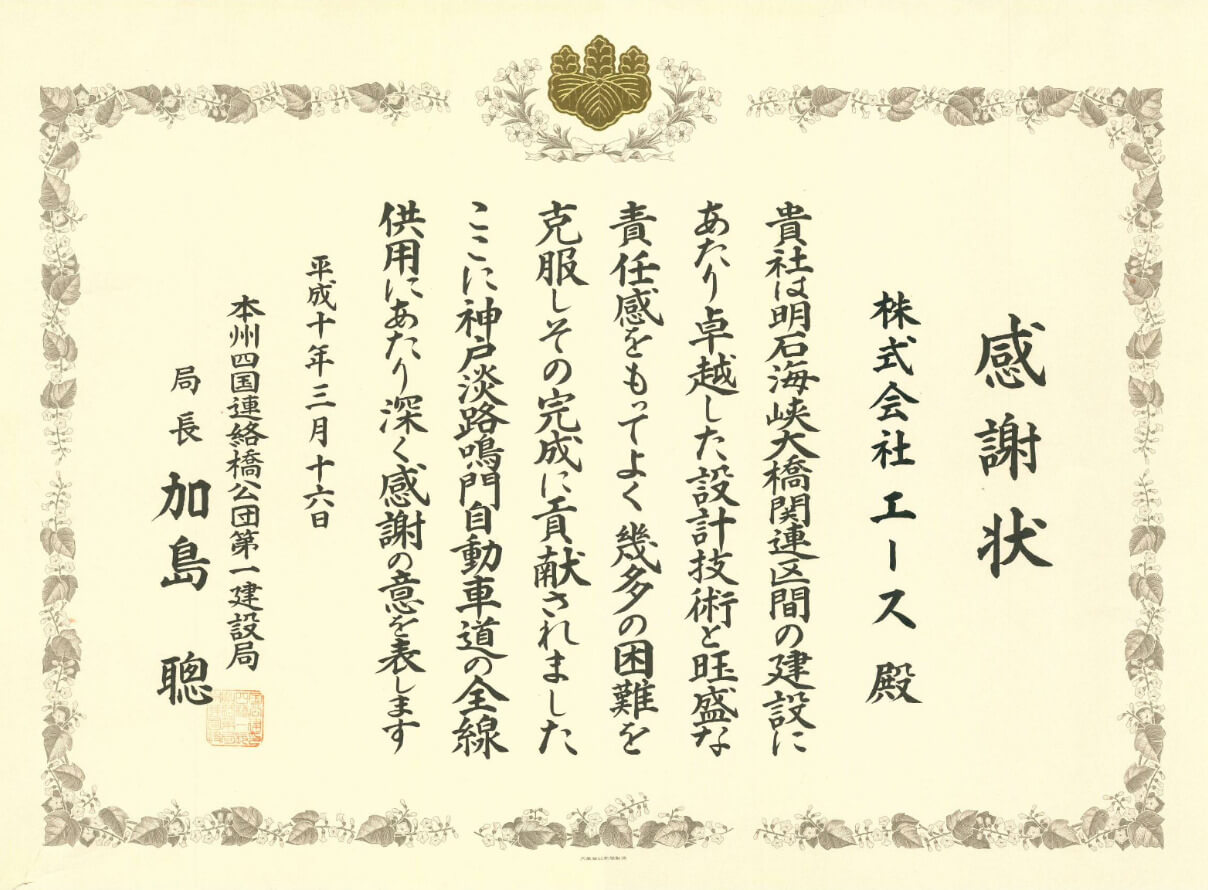 感謝状
株式会社エース 殿
貴社は明石海峡大橋関連区間の建設に
あたり卓越した設計技術と旺盛な
責任感をもってよく幾多の困難を
克服しその完成に貢献されました
ここに神戸淡路鳴門自動車道の全線
供用にあたり深く感謝の意を表します
平成十年三月十六日
本州四国連絡橋公団第一建設局
局長 加島 聰